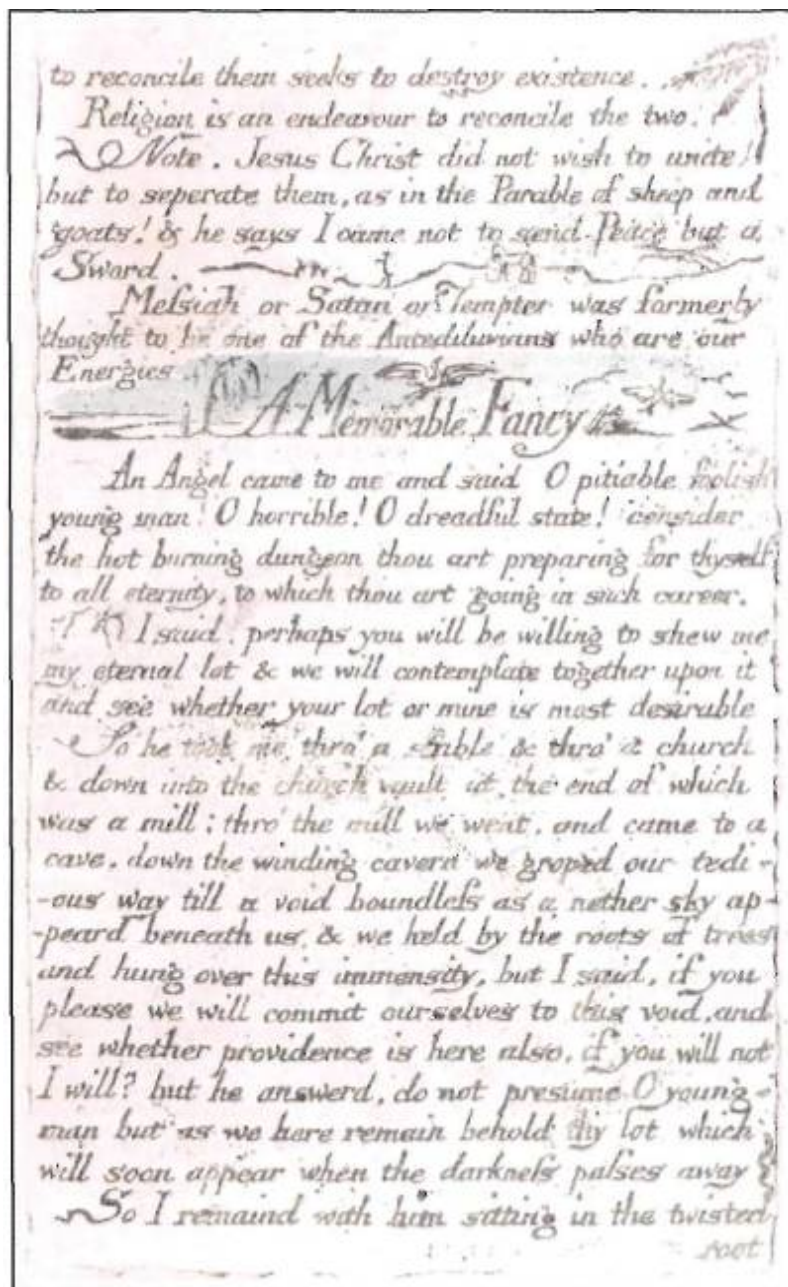 to reconcile them seeks to destroy existence.
Religion is an endeavour to reconcile the two.
Note. Jesus Christ did not wish to unite
but to seperate them, as in the Parable of sheep and
goats! & he says I came not to send Peace but a
Sword.
Meſsiah or Satan or Tempter was formerly
thought to be one of the Antediluvians who are our
Energies
A Memorable Fancy
An Angel came to me and said O pitiable foolish
young man! O horrible! O dreadful state! consider
the hot burning dungeon thou art preparing for thyself
to all eternity, to which thou art going in such career.
I said. perhaps you will be willing to shew me
my eternal lot & we will contemplate together upon it
and see whether your lot or mine is most desirable
So he took me thro' a stable & thro' a church
& down into the church vault at the end of which
was a mill: thro' the mill we went, and came to a
cave. down the winding cavern we groped our tedi-
-ous way till a void boundleſs as a nether sky ap-
-peard beneath us, & we held by the roots of trees
and hung over this immensity, but I said, if you
please we will commit ourselves to this void, and
see whether providence is here also, if you will not
I will? but he answerd, do not presume O young-
man but as we here remain behold thy lot which
will soon appear when the darkneſs paſses away
So I remaind with him sitting in the twisted
root